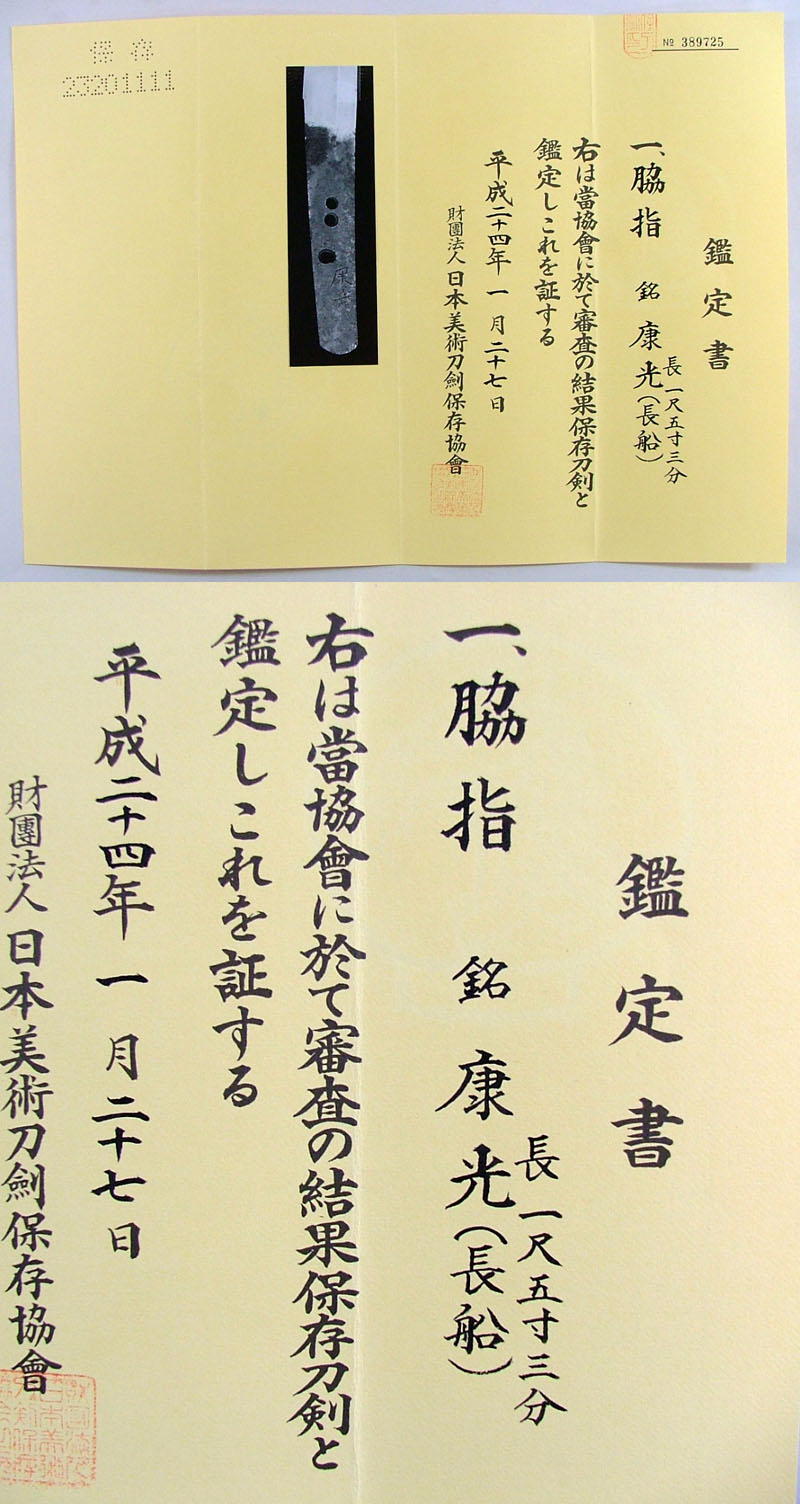 保存
23201111
№ 389725
鑑定書
一、脇指 銘 康光(長船)
長一尺五寸三分
右は當協會に於て審査の結果保存刀剣と
鑑定しこれを証する
平成二十四年一月二十七日
財團法人日本美術刀劍保存協會
康光
鑑定書
一、脇指 銘 康光(長船)
長一尺五寸三分
右は當協會に於て審査の結果保存刀剣と
鑑定しこれを証する
平成二十四年一月二十七日
財團法人日本美術刀劍保存協會